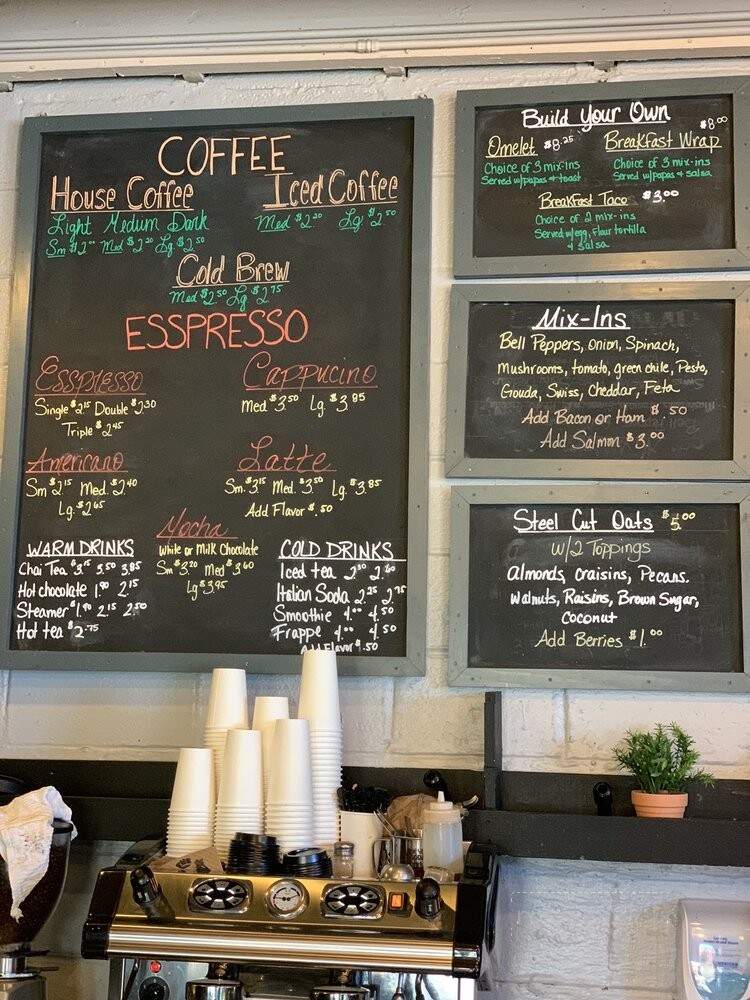 COFFEE
House Coffee
Light Medium Dark
Sm $2.00 Med $2.20 Lg $2.50
Iced Coffee
Med $2.20 Lg $2.50
Cold Brew
Med $2.50 Lg $2.75
ESSPRESSO
Esspresso
Single $2.15 Double $2.30
Triple $2.45
Cappucino
Med $3.50 Lg. $3.85
Americano
Sm $2.15 Med. $2.40
Lg. $2.65
Latte
Sm. $3.15 Med. $3.50 Lg. $3.85
Add Flavor $.50
Mocha
White or Milk Chocolate
Sm $3.20 Med $3.60
Lg $3.95
WARM DRINKS
Chai Tea $3.15 3.50 3.85
Hot chocolate 1.90 2.15
Steamer $1.90 2.15 2.50
Hot tea $2.75
COLD DRINKS
Iced tea 2.30 2.60
Italian Soda 2.25 2.75
Smoothie 4.00 4.50
Frappe 4.00 4.50
Add Flavor $.50
Build Your Own
Omelet $8.25
Choice of 3 mix-ins
Served w/papas & toast
Breakfast Wrap $8.00
Choice of 3 mix-ins
Served w/papas & salsa
Breakfast Taco $3.00
Choice of 2 mix-ins
Served w/egg, flour tortilla
& salsa
Mix-Ins
Bell Peppers, onion, Spinach,
Mushrooms, tomato, green chile, Pesto,
Gouda, Swiss, Cheddar, Feta
Add Bacon or Ham $.50
Add Salmon $3.00
Steel Cut Oats $5.00
w/2 Toppings
Almonds, craisins, Pecans.
Walnuts, Raisins, Brown Sugar,
Coconut
Add Berries $1.00